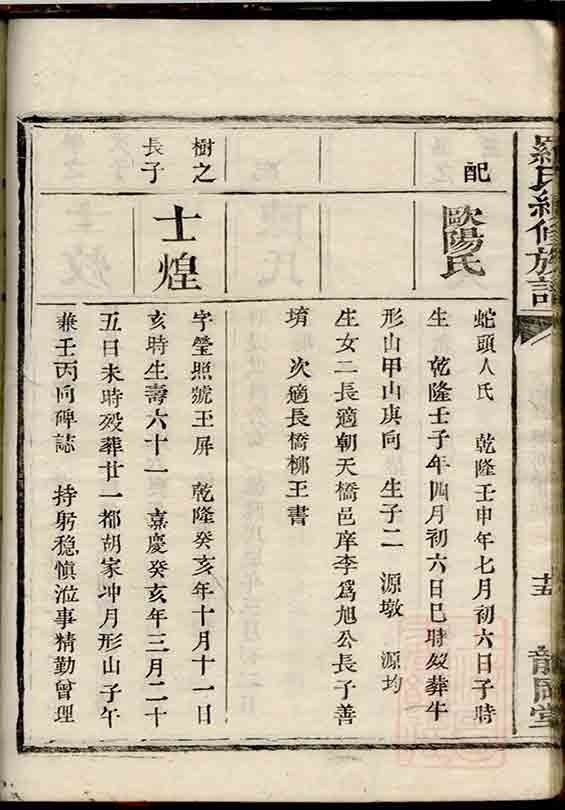 羅氏續修族譜
十五
龍岡堂
配
歐陽氏
蛇頭人氏 乾隆壬申年七月初六日子時
生 乾隆壬子年四月初六日巳時歿葬牛
形山甲山庚向 生子二 源墩 源均
生女二長適朝天橋邑庠李為旭公長子善
堉 次適長橋柳王書
樹之
長子
士煌
字瑩照號玉屏 乾隆癸亥年十月十一日
亥時生壽六十一 嘉慶癸亥年三月二十
五日未時歿葬廿一都胡家冲月形山子午
兼壬丙向碑誌 持躬穩愼涖事精勤曾理